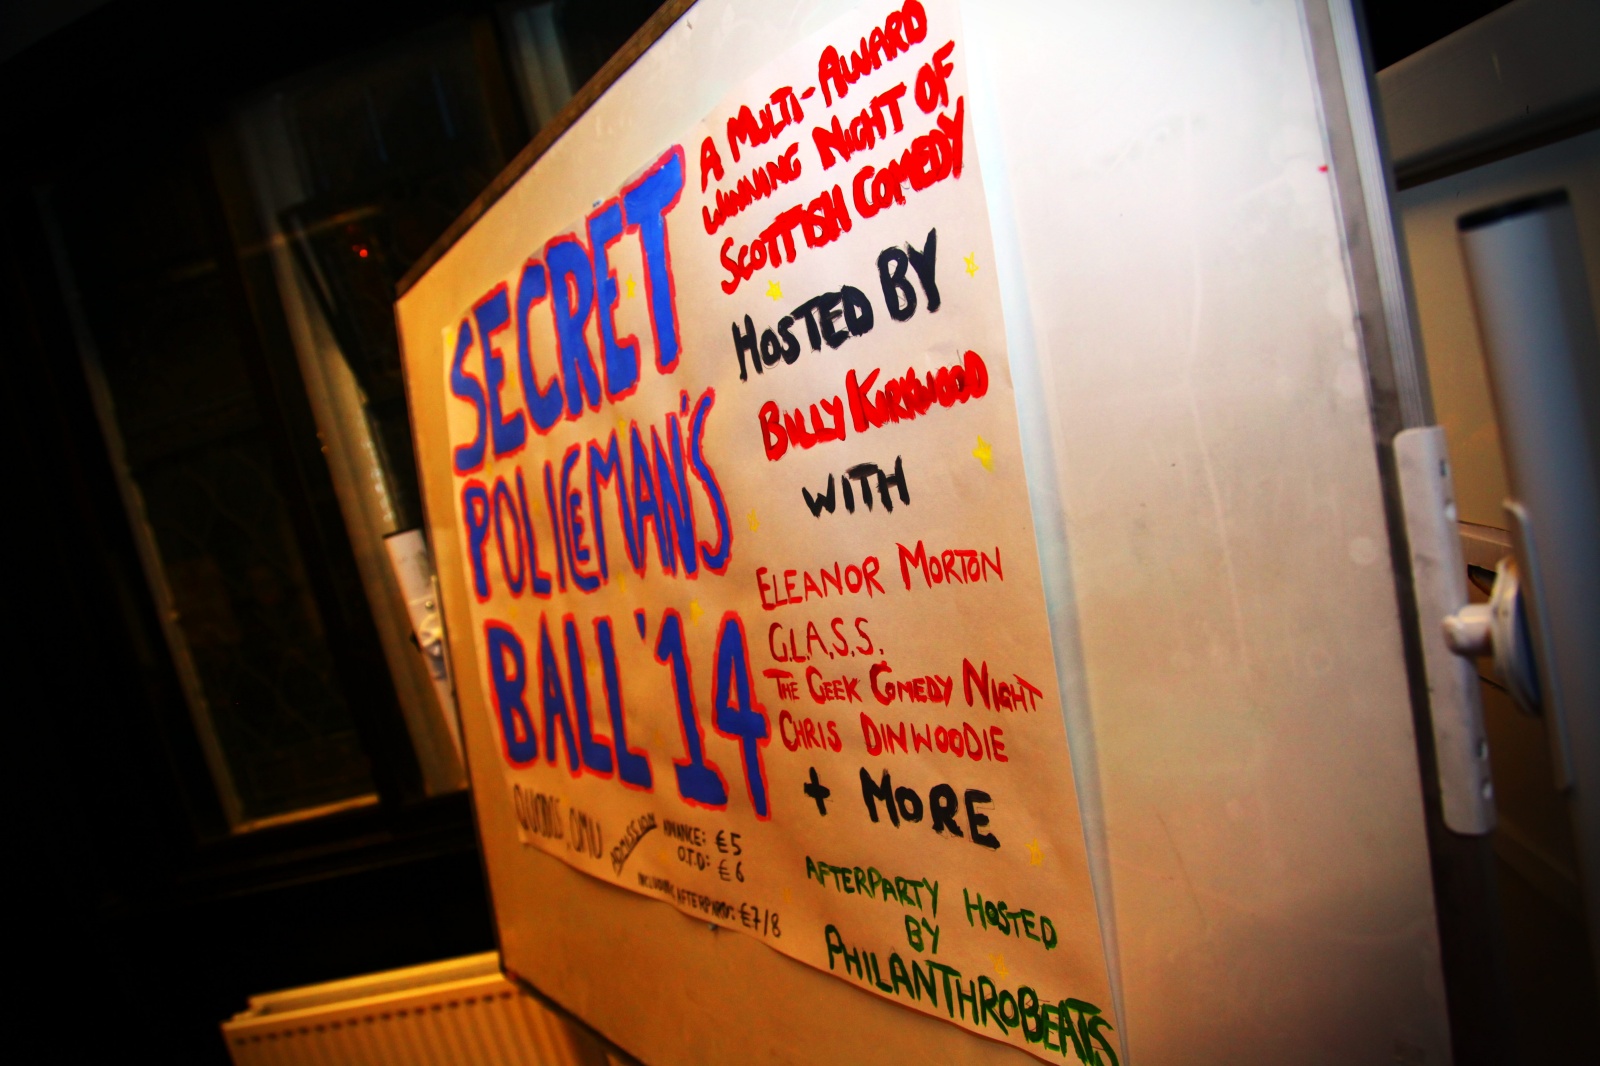 SECRET
POLICEMAN'S
BALL '14
QUDOS, QMU
ADMISSION
ADVANCE: £5
O.T.D: £6
INCLUDING AFTERPARTY: £7/8
A MULTI-AWARD
WINNING NIGHT OF
SCOTTISH COMEDY
HOSTED BY
BILLY KIRKWOOD
WITH
ELEANOR MORTON
G.L.A.S.S.
THE GEEK COMEDY NIGHT
CHRIS DINWOODIE
+ MORE
AFTERPARTY HOSTED
BY
PHILANTHROBEATS